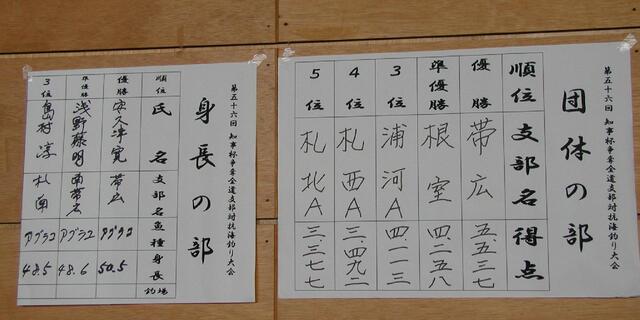 第五十六回 知事杯争奪全道支部対抗海釣り大会
団体の部
順位 支部名 得点
優勝 帯広 五、五三七
準優勝 根室 四、二五八
3位 浦河A 四、一一三
4位 札西A 三、四九二
5位 札北A 三、三七七
第五十六回 知事杯争奪全道支部対抗海釣り大会
身長の部
順位 氏名 支部名 魚種 身長 釣場
優勝 帯広 アブラコ 50.5
準優勝 浅野藤明 南帯広 アブラコ 48.6
3位 島村淳 札南 アブラコ 48.5